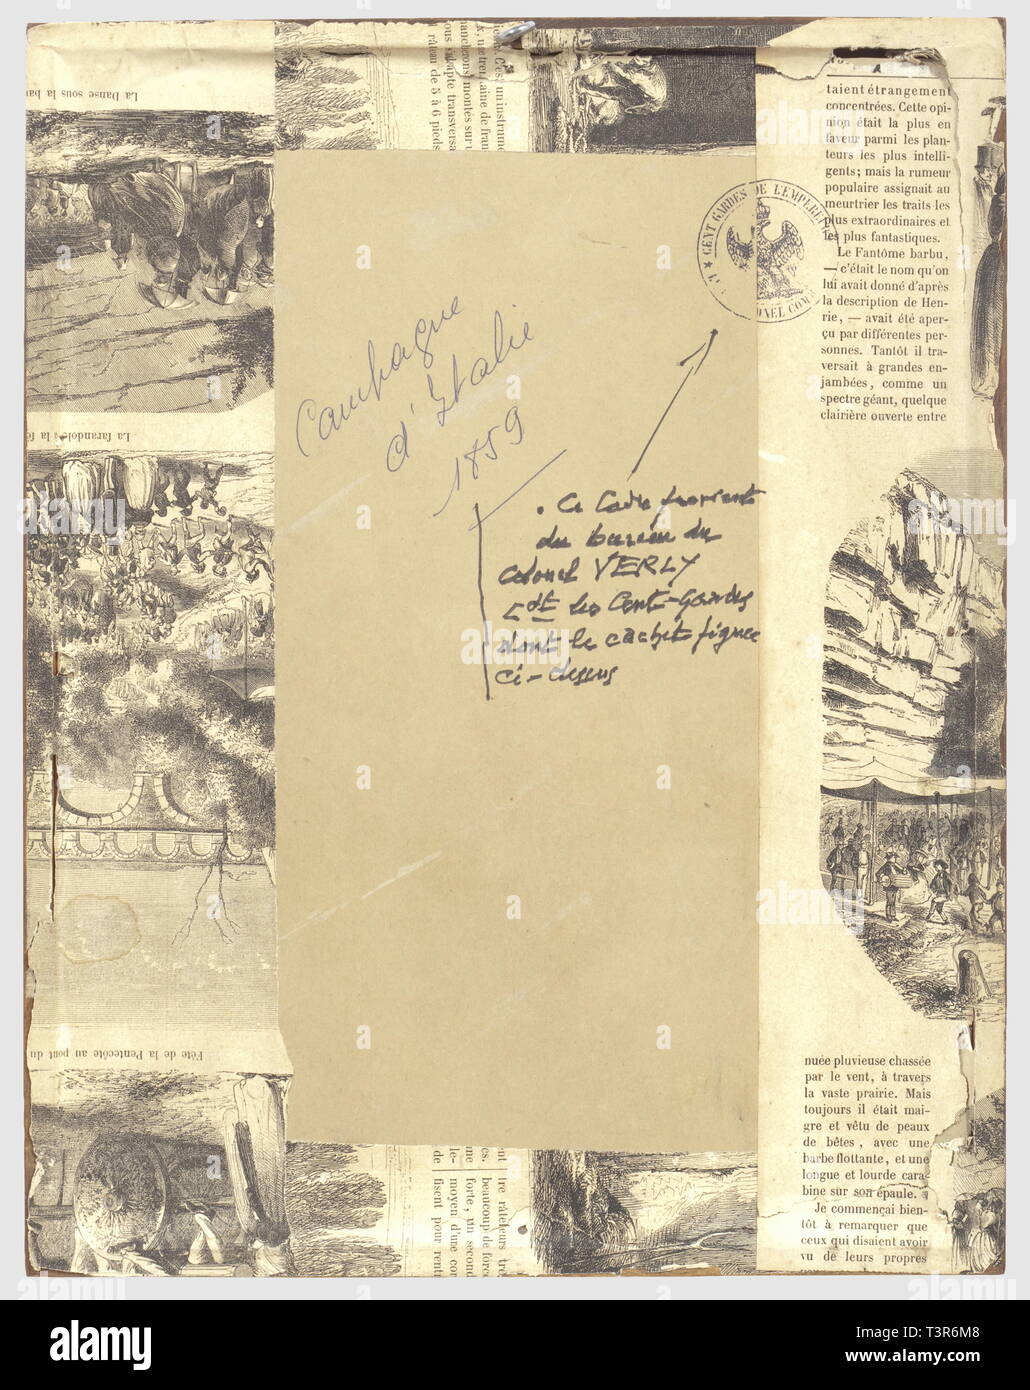 La Danse sous la
C'est un instrume
rateau de 5 à 6 pieds
taient étrangement
concentrées. Cette opi-
nion était la plus en
faveur parmi les plan-
teurs les plus intelli-
gents; mais la rumeur
populaire assignait au
meurtrier les traits les
plus extraordinaires et
les plus fantastiques.
Le Fantôme barbu,
— c'était le nom qu'on
lui avait donné d'après
la description de Hen-
rie, — avait été aper-
çu par différentes per-
sonnes. Tantôt il tra-
versait à grandes en-
jambées, comme un
spectre géant, quelque
clairière ouverte entre
CENT GARDES DE L'EMPEREUR
ONEL COM
Campagne
d'Italie
1859
La farandole à la
. Ce Cadre provient
du bureau du
Colonel VERLY
Cdt les Cent-Gardes
dont le cachet figure
ci-dessus
Fête de la Pentecôte au pont du
nuée pluvieuse chassée
par le vent, à travers
la vaste prairie. Mais
toujours il était mai-
gre et vêtu de peaux
de bêtes, avec une
barbe flottante, et une
longue et lourde cara-
bine sur son épaule.
Je commençai bien-
tôt à remarquer que
ceux qui disaient avoir
vu de leurs propres
tre râteleurs
beaucoup de force
forte, un second
moyen d'une cor
fisent pour rent
alamy
Image ID: T3R6M8
www.alamy.com